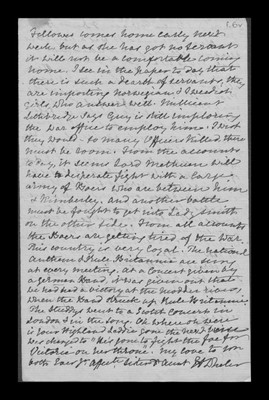 Fellowes comes home early next
week but as she has got no servants
it will not be a comfortable coming
home. I see in the paper to day that
there is such a dearth of servants, they
are importing Norwegian & Swedish
girls, who answer well. Millicent
says Guy is still imploring
the War office to employ him. I wish
they would. so many Officers killed there
must be room. From the accounts
to day, it seems Lord Methuen will
have to desperate fight with a large
army of Boers who are between him
& Kimberley, and another battle
must be fought to get into Lady Smith
on the other side. From all accounts
the Boers are getting tired of the War.
This country is very loyal. The National
Anthem & Rule Britannia are sung
at every meeting, at a Concert given by
a German Band, it was given out that
we had had a victory at the Modder river,
when the Band struck up Rule Britannia.
The went to a Scotch Concert in
London & in the song Oh where oh where
is your Highland Laddie gone the next verse
was changed to "He's gone to fight the foe for
Victoria on her throne. My love to you
both Ever Yr affecte Sister & Aunt